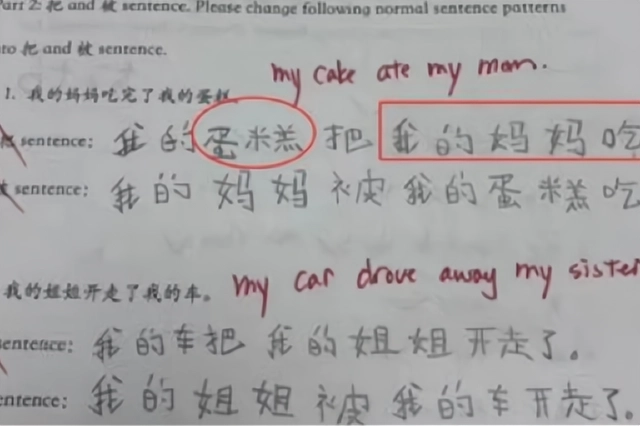 Part 2: 把 and 被 sentence. Please change following normal sentence patterns
to 把 and 被 sentence.
my cake ate my mom.
1. 我的妈妈吃完了我的蛋糕
sentence: 我的蛋糕把我的妈妈吃
sentence: 我的妈妈被我的蛋糕吃
我的姐姐开走了我的车。 my car drove away my sister
sentence: 我的车把我的姐姐开走了。
sentence: 我的姐姐被我的车开走了。